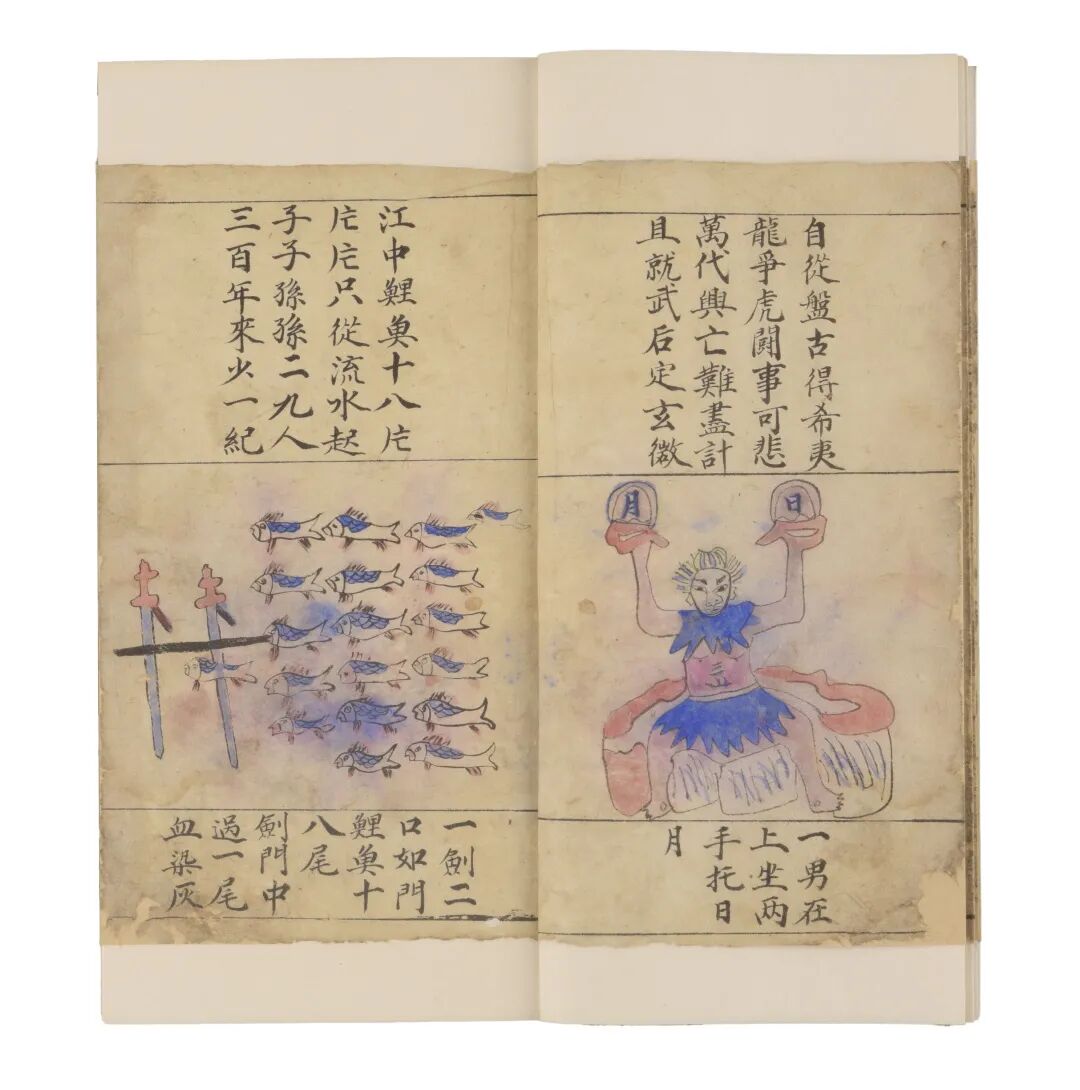 自從盤古得希夷
龍爭虎鬪事可悲
萬代興亡難盡計
且就武后定玄微
月
日
一男在
上坐两
手托日
月
江中鯉魚十八片
片片只從流水起
子子孫孫二九人
三百年來少一紀
一劍二
口如門
鯉魚十
八尾
劍門中
過一尾
血染灰